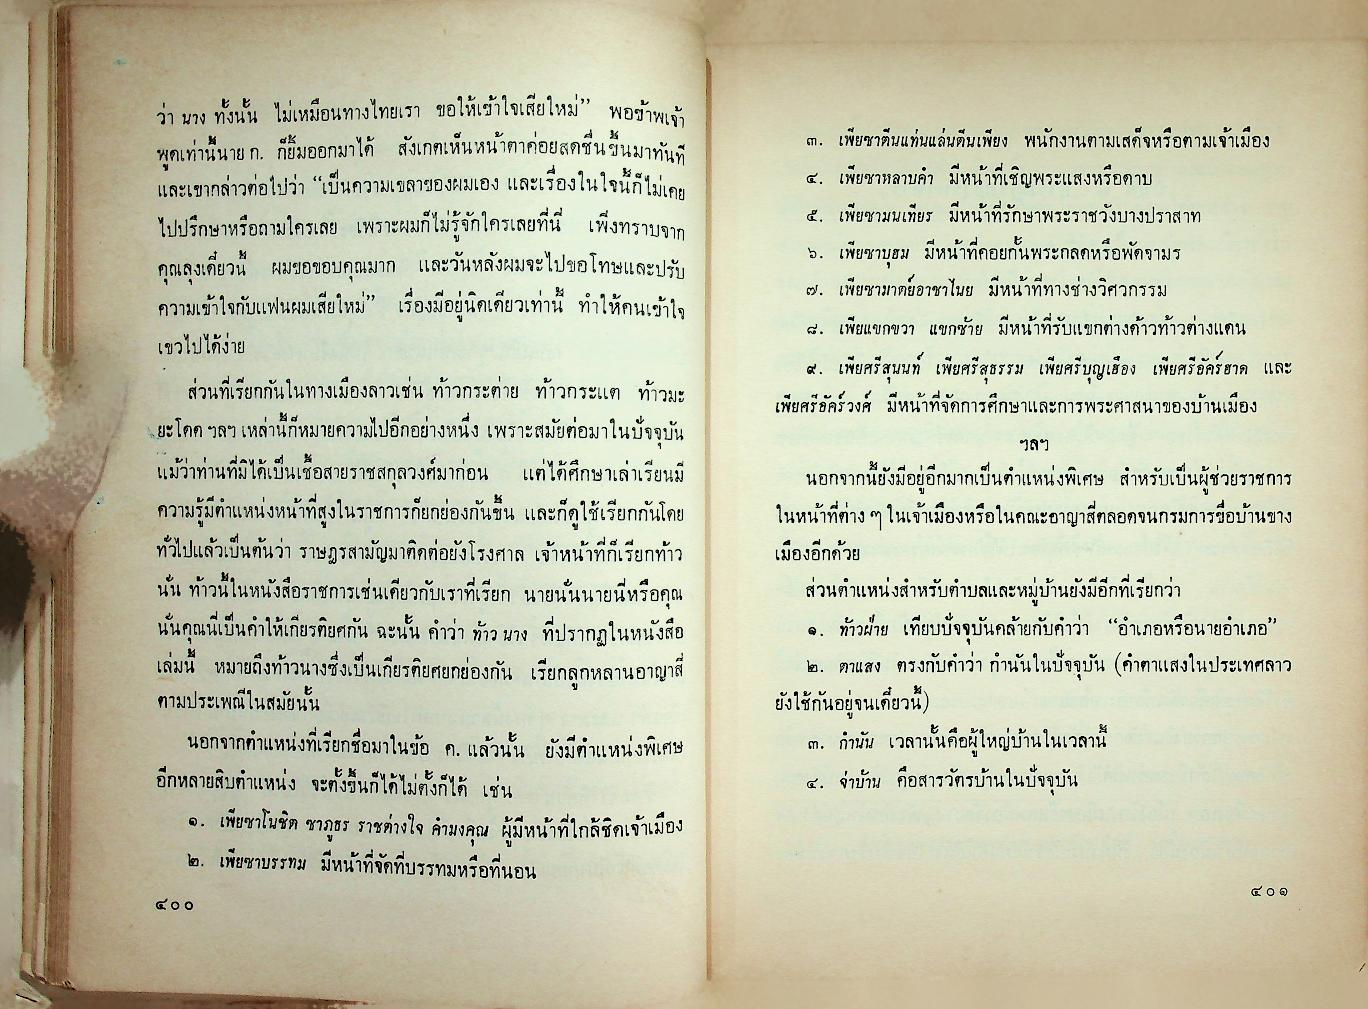 ว่า นาง ทั้งนั้น ไม่เหมือนทางไทยเรา ขอให้เข้าใจเสียใหม่” พอข้าพเจ้า
พูดเท่านี้นาย ก. ก็ยิ้มออกมาได้ สังเกตเห็นหน้าตาค่อยสดชื่นขึ้นมาทันที
และเขากล่าวต่อไปว่า “เป็นความเขลาของผมเอง และเรื่องในใจนี้ก็ไม่เคย
ไปปรึกษาหรือถามใครเลย เพราะผมก็ไม่รู้จักใครเลยที่นี่ เพิ่งทราบจาก
คุณลุงเดี๋ยวนี้ ผมขอขอบคุณมาก และวันหลังผมจะไปขอโทษและปรับ
ความเข้าใจกับแฟนผมเสียใหม่” เรื่องมีอยู่นิดเดียวเท่านี้ ทำให้คนเข้าใจ
เขวไปได้ง่าย
ส่วนที่เรียกกันในทางเมืองลาวเช่น ท้าวกระต่าย ท้าวกระแต ท้าวมะ
ยะโคด ฯลฯ เหล่านี้ก็หมายความไปอีกอย่างหนึ่ง เพราะสมัยต่อมาในปัจจุบัน
แม้ว่าท่านที่มิได้เป็นเชื้อสายราชสกุลวงศ์มาก่อน แต่ได้ศึกษาเล่าเรียนมี
ความรู้มีตำแหน่งหน้าที่สูงในราชการก็ยกย่องกันขึ้น และก็ดูใช้เรียกกันโดย
ทั่วไปแล้วเป็นต้นว่า ราษฎรสามัญมาติดต่อยังโรงศาล เจ้าหน้าที่ก็เรียกท้าว
นั่น ท้าวนี้ในหนังสือราชการเช่นเดียวกับเราที่เรียก นายนั่นนายนี่หรือคุณ
นั่นคุณนี่เป็นคำให้เกียรติยศกัน ฉะนั้น คำว่า ท้าว นาง ที่ปรากฏในหนังสือ
เล่มนี้ หมายถึงท้าวนางซึ่งเป็นเกียรติยศยกย่องกัน เรียกลูกหลานอาญาสี่
ตามประเพณีในสมัยนั้น
นอกจากตำแหน่งที่เรียกชื่อมาในข้อ ค. แล้วนั้น ยังมีตำแหน่งพิเศษ
อีกหลายสิบตำแหน่ง จะตั้งขึ้นก็ได้ไม่ตั้งก็ได้ เช่น
๑. เพียซาโนชิต ซาภูธร ราชต่างใจ คำมงคุณ ผู้มีหน้าที่ใกล้ชิดเจ้าเมือง
๒. เพียซาบรรทม มีหน้าที่จัดที่บรรทมหรือที่นอน
๔๐๐
๓. เพียซาตีนแท่นแล่นตีนเพียง พนักงานตามเสด็จหรือตามเจ้าเมือง
๔. เพียซาหลาบคำ มีหน้าที่เชิญพระแสงหรือดาบ
๕. เพียซามนเทียร มีหน้าที่รักษาพระราชวังบางปราสาท
๖. เพียซาบุฮม มีหน้าที่คอยกั้นพระกลดหรือพัดจามร
๗. เพียซามาตย์อาซาไนย มีหน้าที่ทางช่างวิศวกรรม
๘. เพียแขกขวา แขกซ้าย มีหน้าที่รับแขกต่างด้าวท้าวต่างแดน
๙. เพียศรีสุนนท์ เพียศรีสุธรรม เพียศรีบุญเฮือง เพียศรีอัครฮาด และ
เพียศรีอัครวงศ์ มีหน้าที่จัดการศึกษาและการพระศาสนาของบ้านเมือง
ฯลฯ
นอกจากนี้ยังมีอยู่อีกมากเป็นตำแหน่งพิเศษ สำหรับเป็นผู้ช่วยราชการ
ในหน้าที่ต่าง ๆ ในเจ้าเมืองหรือในคณะอาญาสี่ตลอดจนกรมการขื่อบ้านขาง
เมืองอีกด้วย
ส่วนตำแหน่งสำหรับตำบลและหมู่บ้านยังมีอีกที่เรียกว่า
๑. ท้าวฝ่าย เทียบปัจจุบันคล้ายกับคำว่า “อำเภอหรือนายอำเภอ”
๒. ตาแสง ตรงกับคำว่า กำนันในปัจจุบัน (คำตาแสงในประเทศลาว
ยังใช้กันอยู่จนเดี๋ยวนี้)
๓. กำนัน เวลานั้นคือผู้ใหญ่บ้านในเวลานี้
๔. จ่าบ้าน คือสารวัตรบ้านในปัจจุบัน
๔๐๑